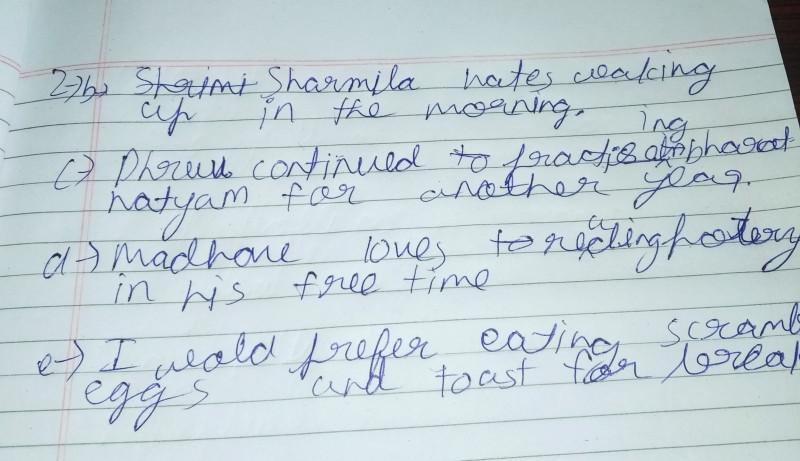 2→b→ Shrimi Sharmila hates waking
up in the morning.
ing
c→ Dhruv continued to practise bharat
natyam for another year.
d→ Madhave loves to reading poetery
in his free time
e→ I would prefer eating scramb
eggs and toast for break